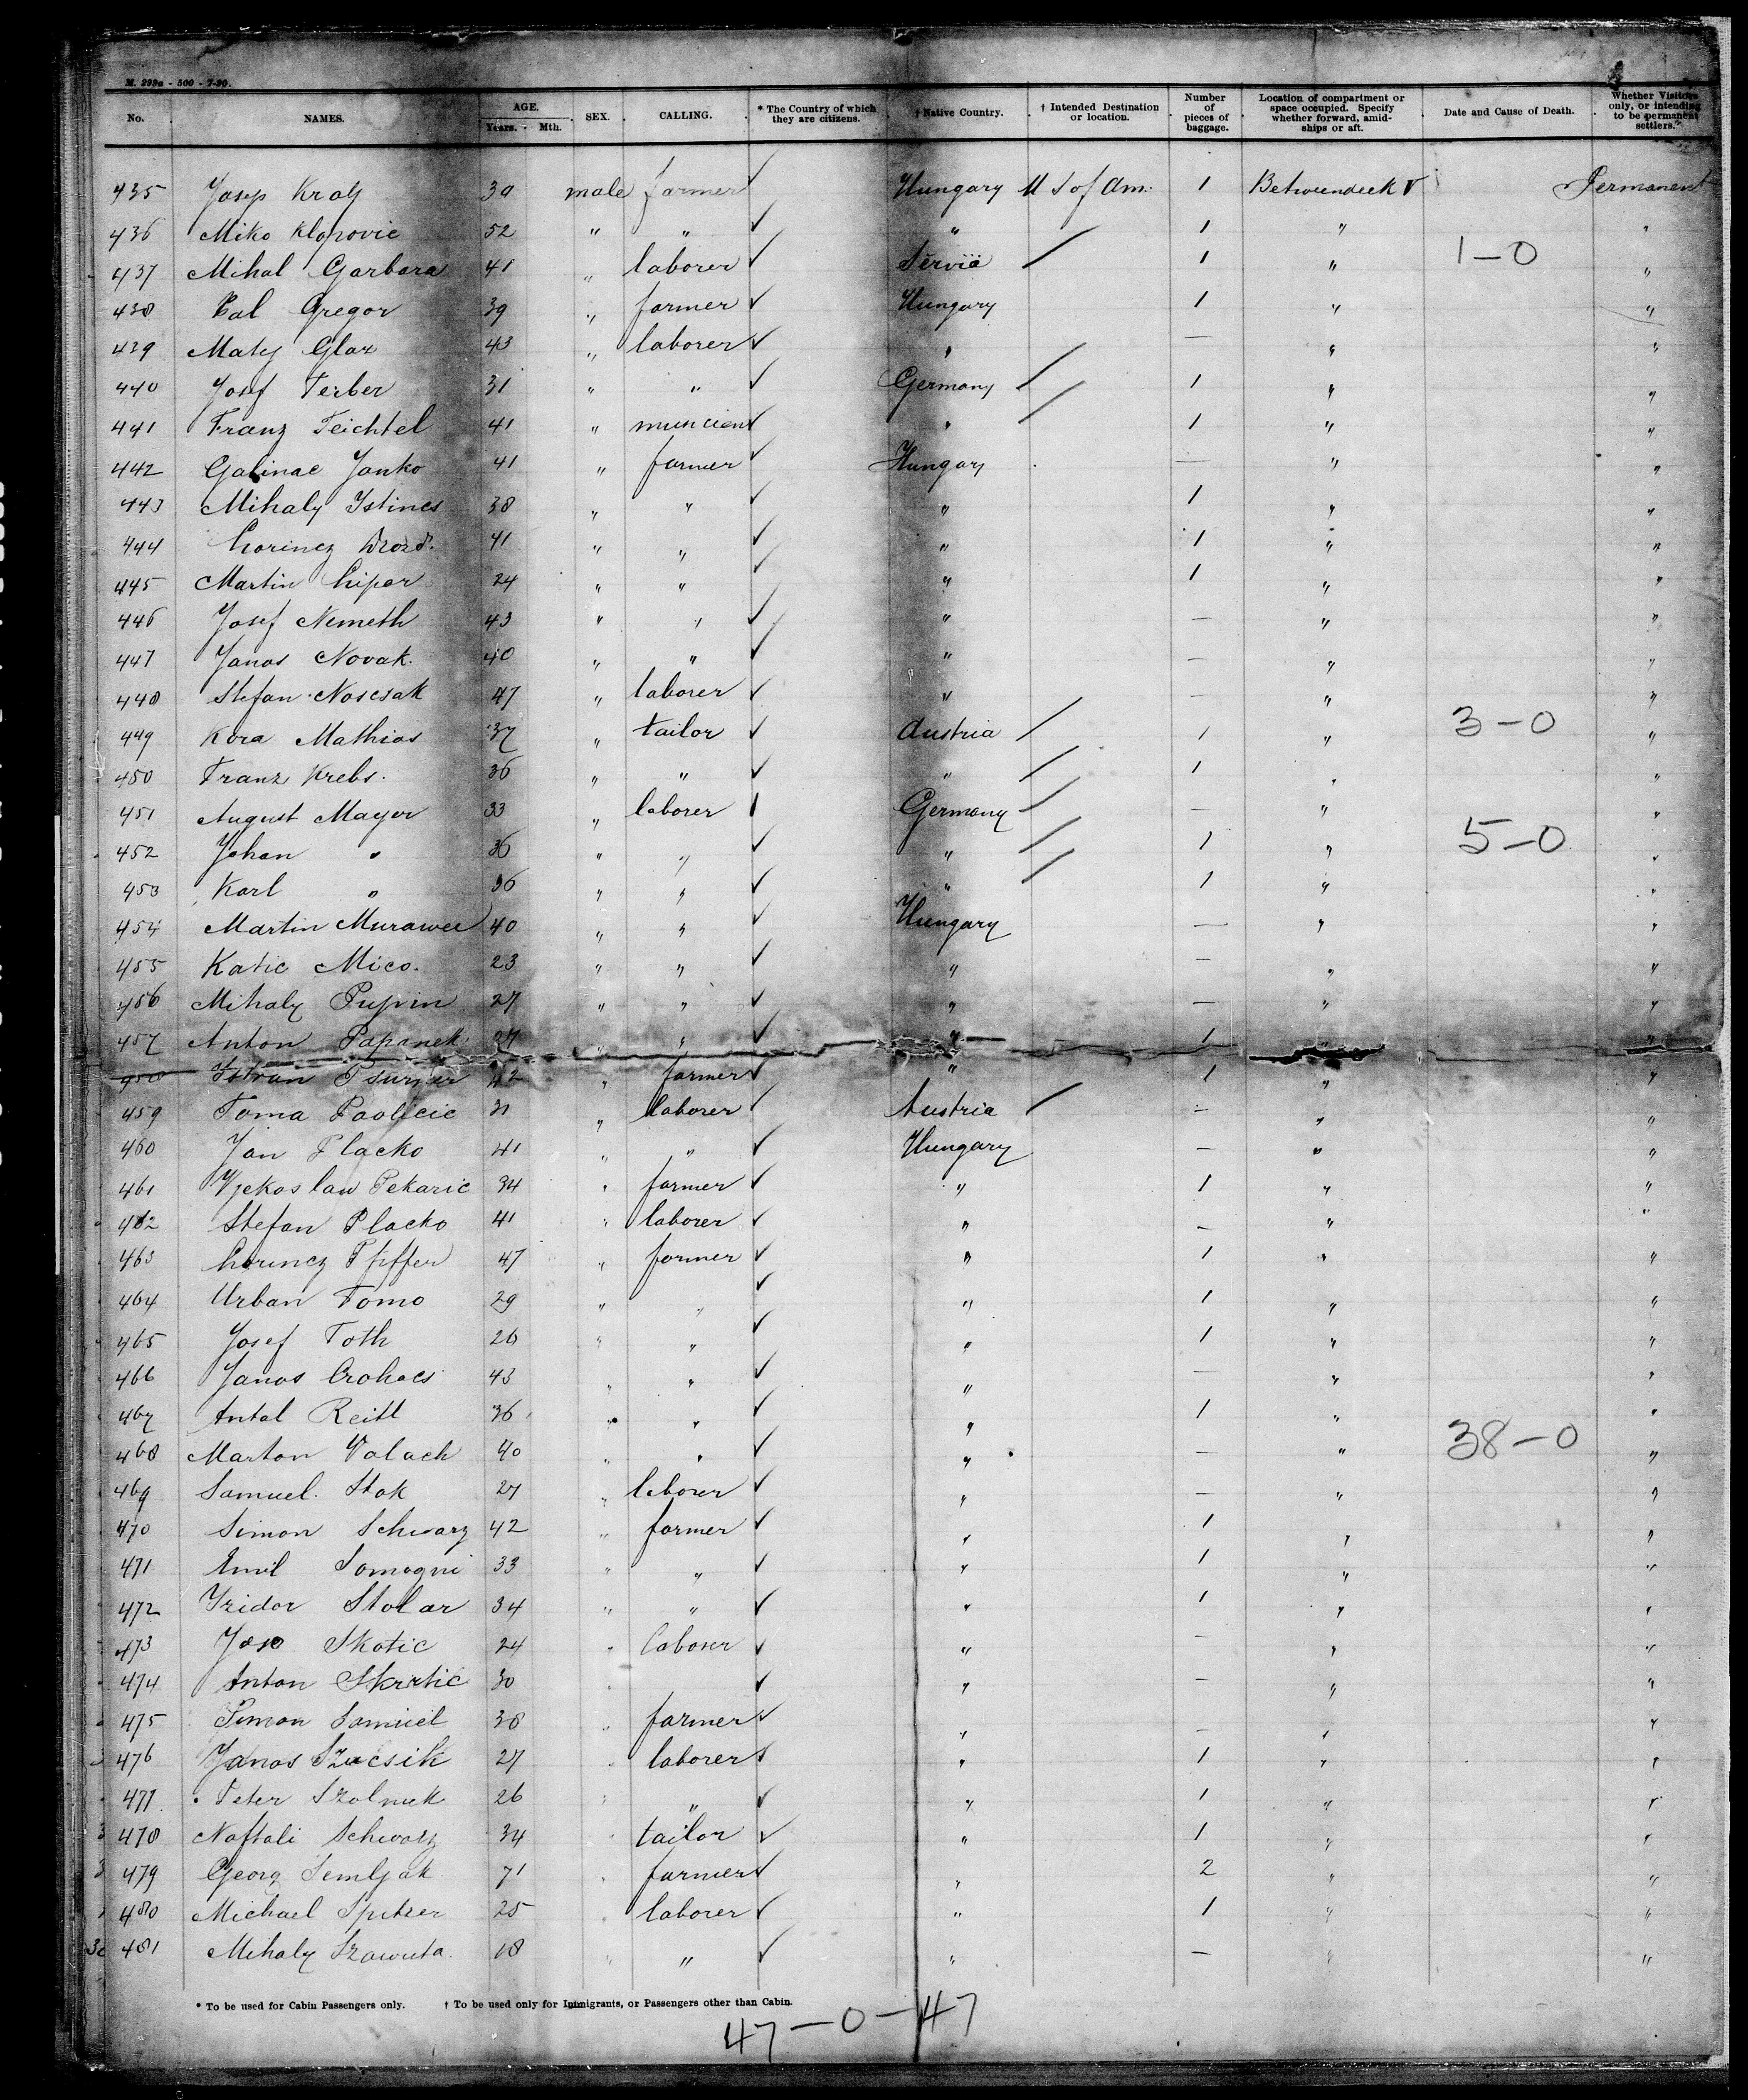 M. 299a - 500 - 7-90.
No. NAMES. AGE. Years. - Mth. SEX. CALLING. * The Country of which they are citizens. † Native Country. † Intended Destination or location. Number of pieces of baggage. Location of compartment or space occupied. Specify whether forward, amidships or aft. Date and Cause of Death. Whether Visitors only, or intending to be permanent settlers.
435 Josip Kralj 30 male farmer ✓ Hungary U S of Am. 1 Betweendeck Permanent
436 Miko Klopovic 52 " " ✓ " 1 " "
437 Mihal Garbara 41 " laborer ✓ Servia / 1 " 1-0 "
438 Pal Gregor 39 " farmer ✓ Hungary 1 " "
439 Maty Glaz 43 " laborer ✓ " — " "
440 Josef Ferber 31 " " ✓ Germany / 1 " "
441 Franz Teichtel 41 " musician ✓ " / 1 " "
442 Galinac Janko 41 " farmer ✓ Hungary — " "
443 Mihaly Istines 38 " " ✓ " 1 " "
444 Lorincz Drozd. 41 " " ✓ " 1 " "
445 Martin Lipar 24 " " ✓ " 1 " "
446 Josef Nemeth 43 " " ✓ " — " "
447 Janos Novak. 40 " " ✓ " — " "
448 Stefan Noscsak 47 " laborer ✓ " — " "
449 Kora Mathias 37 " tailor ✓ Austria / 1 " 3-0 "
450 Franz Krebs. 36 " " ✓ " / 1 " "
451 August Mayer 33 " laborer Germany / — " "
452 Johan " 36 " " ✓ " / 1 " 5-0 "
453 Karl " 36 " " ✓ " / 1 " "
454 Martin Murawec 40 " " ✓ Hungary — " "
455 Katic Mico. 23 " " ✓ " — " "
456 Mihaly Pupin 27 " " ✓ " — " "
457 Anton Papanek 27 " " ✓ " 1 " "
458 Istvan 42 " farmer ✓ " 1 " "
459 Toma Paoljcic 31 " laborer ✓ Austria / — " "
460 Jan Placko 41 " " ✓ Hungary — " "
461 Vjekoslaw Pekaric 34 " farmer ✓ " 1 " "
462 Stefan Placko 41 " laborer ✓ " — " "
463 Lorincz Pfiffer 47 " farmer ✓ " 1 " "
464 Urban Tomo 29 " " ✓ " 1 " "
465 Josef Toth 26 " " ✓ " 1 " "
466 Janos Orohacs 43 " " ✓ " — " "
467 Antal Reitl 36 " " ✓ " 1 " "
468 Marton Valach 40 " " ✓ " — " 38-0 "
469 Samuel Stok 27 " laborer ✓ " — " "
470 Simon Schwarz 42 " farmer ✓ " 1 " "
471 Emil Somogni 33 " " ✓ " 1 " "
472 Izidor Stolar 34 " " ✓ " 1 " "
473 Joso Skotic 24 " laborer ✓ " — " "
474 Anton Skrtic 30 " ✓ " — " "
475 Simon Samuel 38 " farmer ✓ " — " "
476 Janos Szucsik 27 " laborer ✓ " 1 " "
477 Peter Szolnek 26 " " ✓ " 1 " "
478 Naftali Schwarz 34 " tailor ✓ " 1 " "
479 Georg Semljak 71 " farmer ✓ " 2 " "
480 Michael Spitzer 25 " laborer ✓ " 1 " "
481 Mihaly Szawuta. 18 " " ✓ " — " "
* To be used for Cabin Passengers only. † To be used only for Immigrants, or Passengers other than Cabin.
47-0-47